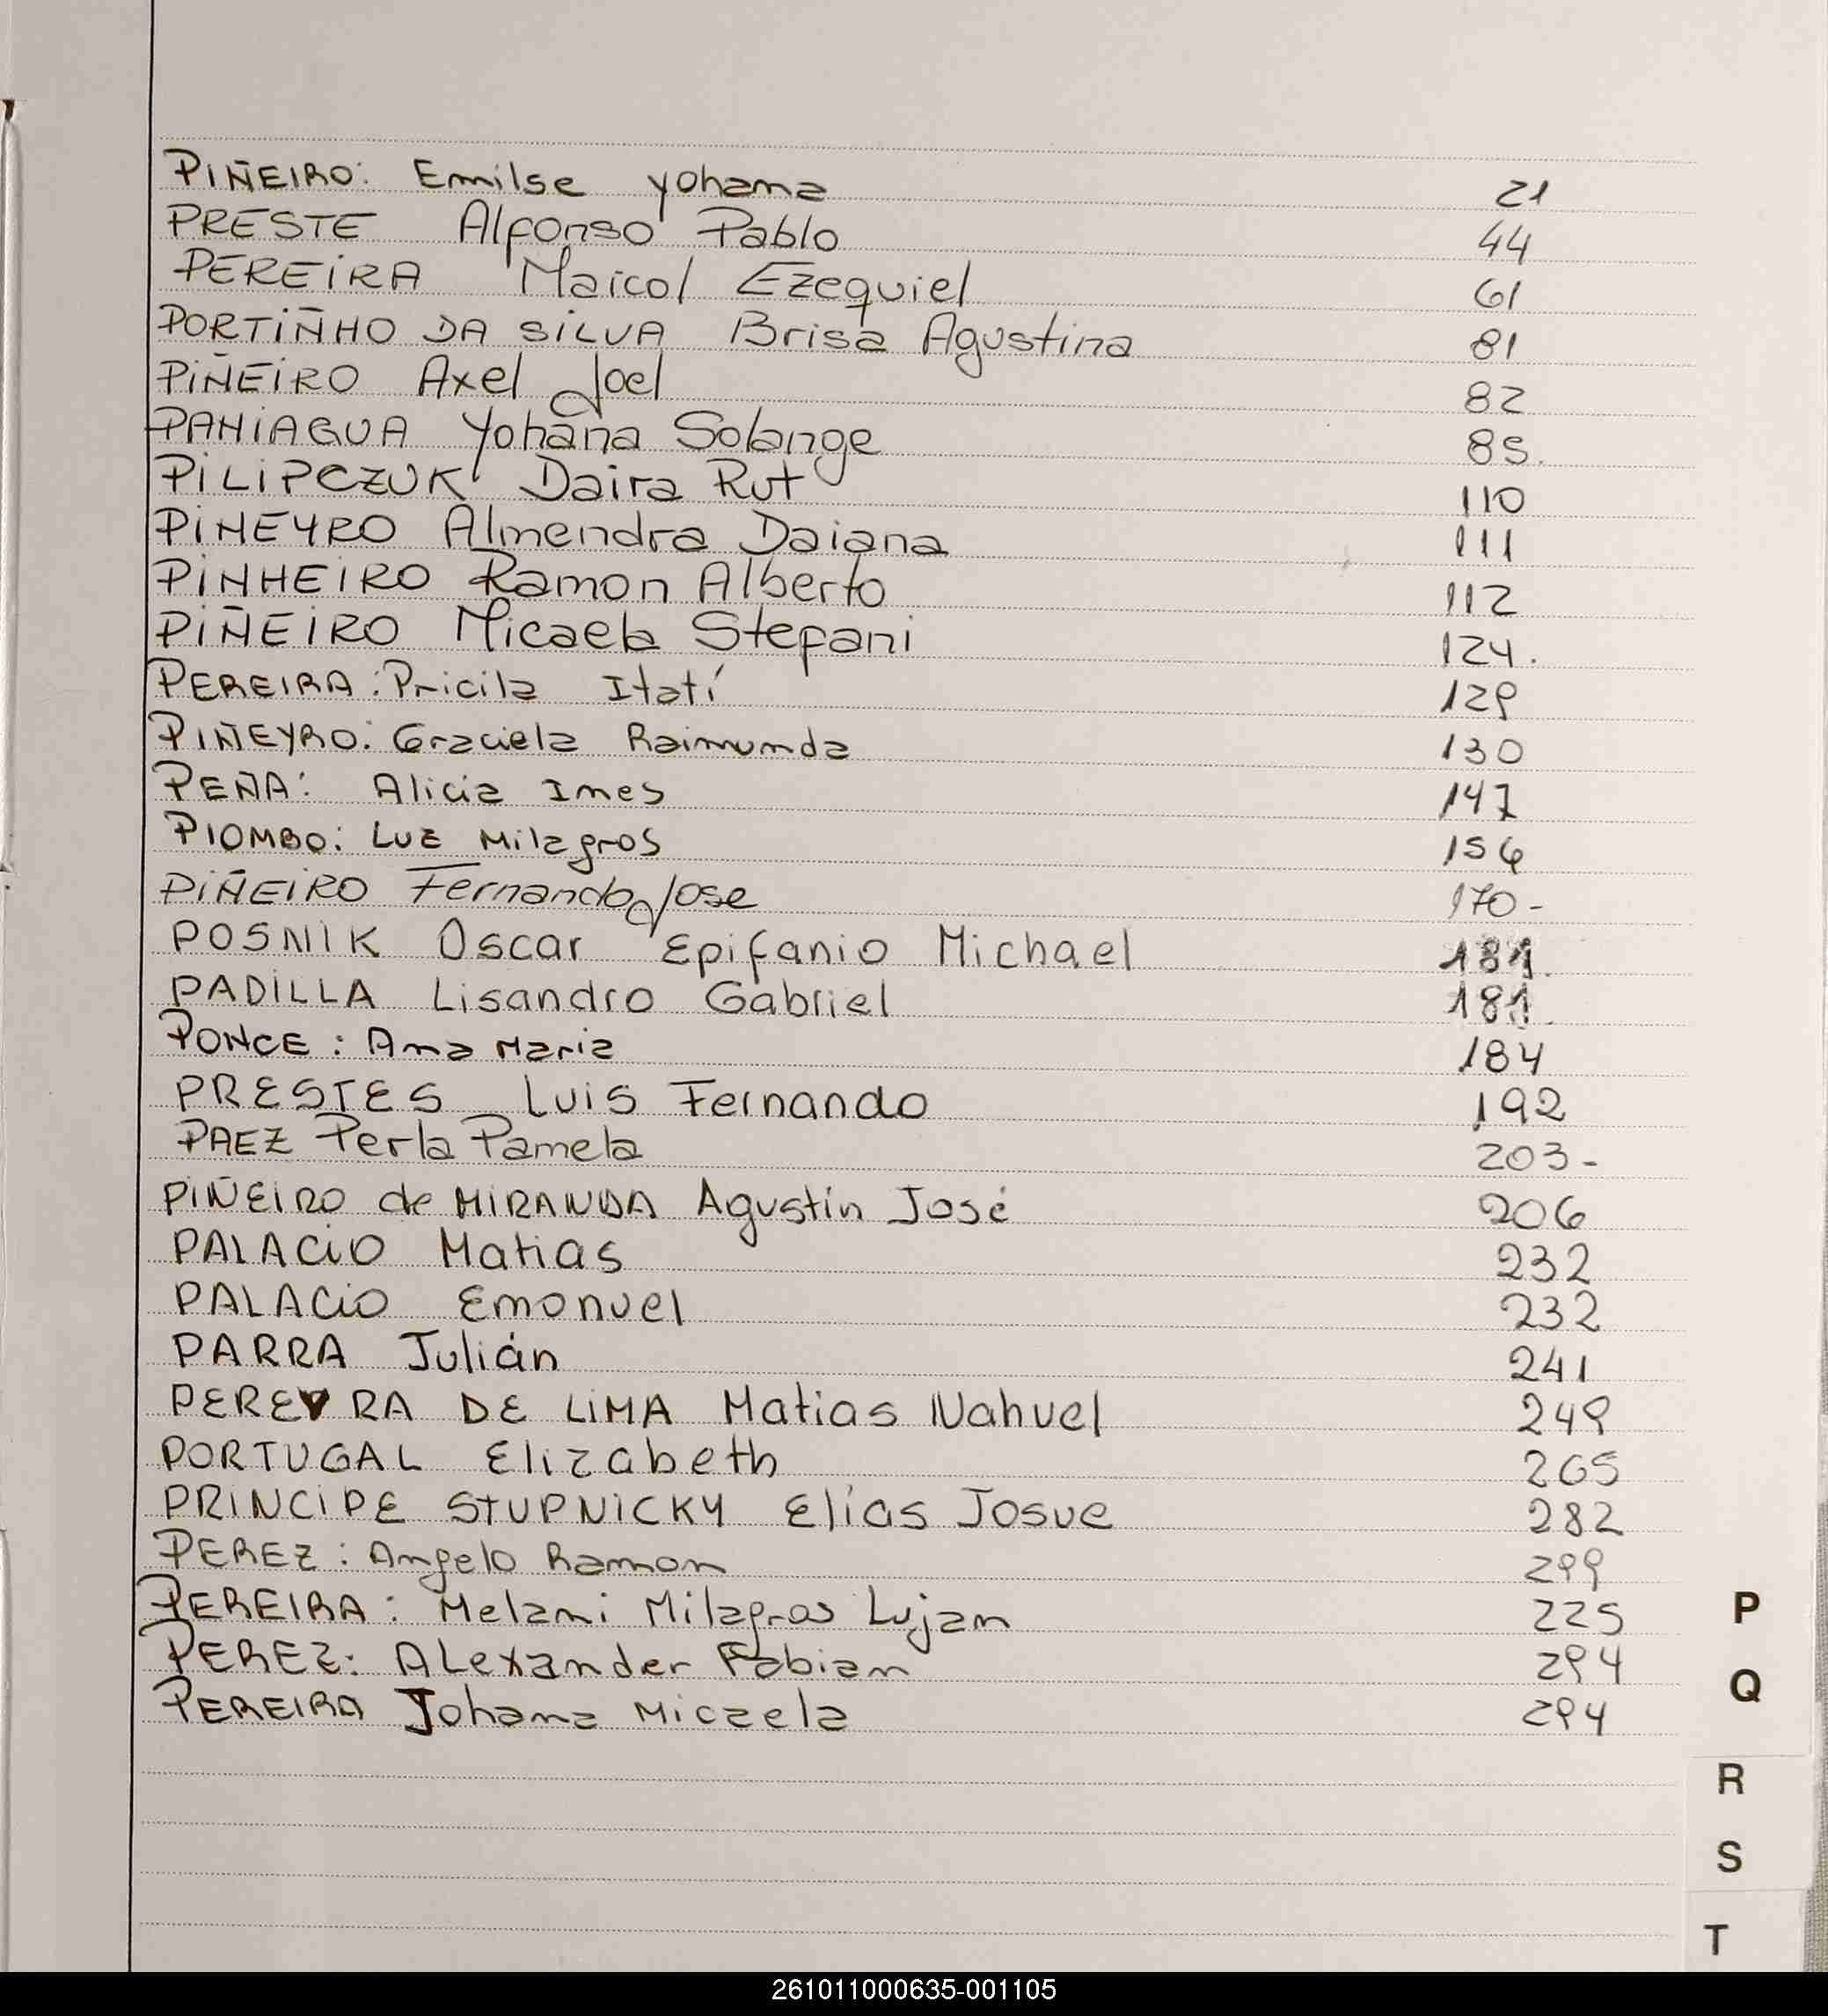 PIÑEIRO: Emilse Yohana 21
PRESTE Alfonso Pablo 44
PEREIRA Maicol Ezequiel 61
PORTIÑHO DA SILVA Brisa Agustina 81
PIÑEIRO Axel Joel 82
PANIAGUA Yohana Solange 85.
PILIPCZUK Daira Rut 110
PINEYRO Almendra Daiana 111
PINHEIRO Ramon Alberto 112
PIÑEIRO Micaela Stefani 124.
PEREIRA: Pricila Itatí 129
PIÑEYRO: Graciela Raimunda 130
PEÑA: Alicia Ines 147
PIOMBO: LUZ Milagros 156
PIÑEIRO Fernando Jose 170-
POSNIK Oscar Epifanio Michael 181.
PADILLA Lisandro Gabriel 181.
PONCE: Ana Maria 184
PRESTES Luis Fernando 192
PAEZ Perla Pamela 203-
PIÑEIRO de MIRANDA Agustín José 206
PALACIO Matias 232
PALACIO Emanuel 232
PARRA Julián 241
PEREYRA DE LIMA Matias Nahuel 249
PORTUGAL Elizabeth 265
PRINCIPE STUPNICKY Elías Josue 282
PEREZ: Angelo Ramon 299
PEREIRA: Melani Milagros Lujan 225
PEREZ: Alexander Fabian 294
PEREIRA Johana Micaela 294
P
Q
R
S
T
261011000635-001105